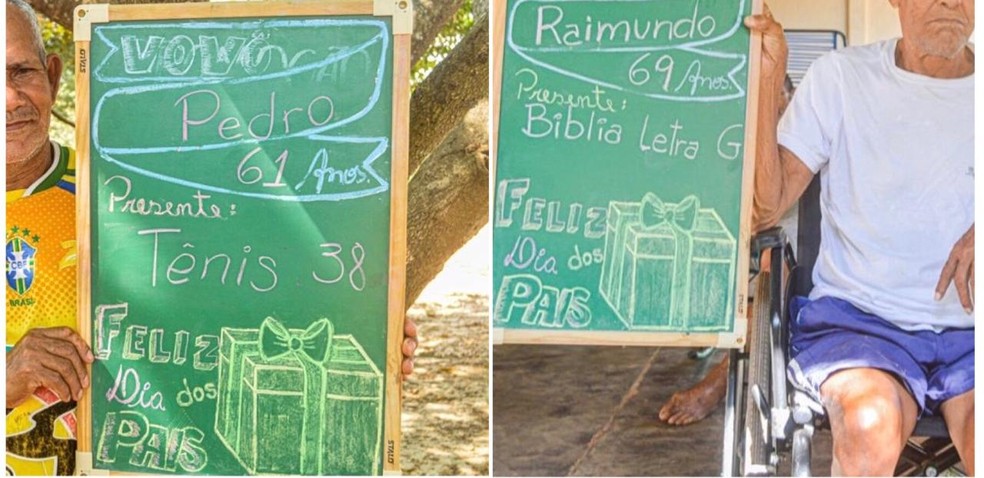 VOVÔ
Pedro
61 Anos.
Presente:
Tênis 38
FELIZ
Dia dos
PAIS
CBF
BRASIL
STALO
STALO
Raimundo
69 Anos.
Presente:
Biblia Letra G
FELIZ
Dia dos
PAIS